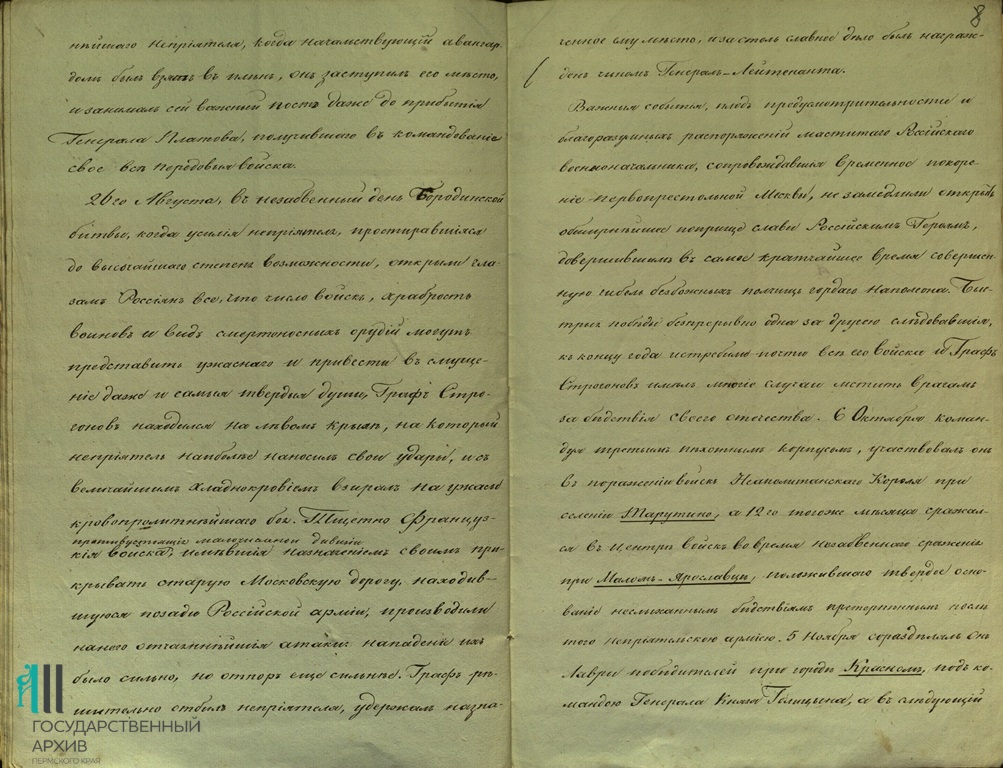 нѣйшаго непріятеля, когда начальствующій авангар-
домъ былъ взятъ въ плѣнъ, онъ заступилъ его мѣсто,
и занималъ сей важный постъ даже до прибытія
Генерала Платова, получившаго въ командованіе
свое всѣ передовыя войска.
26го Августа, въ незабвенный день Бородинской
битвы, когда усилія непріятеля, простиравшіяся
до высочайшаго степени возможности, открыли гла-
замъ Россіянъ все, что число войскъ, храбрость
воиновъ и видъ смертоносныхъ орудій могутъ
представить ужаснаго и привести въ смуще-
ніе даже и самыя твердыя души, Графъ Стро-
гоновъ находился на лѣвомъ крылѣ, на который
непріятель наиболѣе наносилъ свои удары, и съ
величайшимъ хладнокровіемъ взиралъ на ужасы
кровопролитнѣйшаго боя. Тщетно Француз-
противустоящія малочисленной дивизіи
кія войска, имѣвшія назначеніемъ своимъ при-
крывать старую Московскую дорогу, находив-
шуюся позади Россійской арміи, производили
на него отчаяннѣйшія атаки: нападеніе ихъ
было сильно, но отпоръ еще сильнѣе. Графъ рѣ-
шительно отбилъ непріятеля, удержалъ назна-
ГОСУДАРСТВЕННЫЙ
АРХИВ
ПЕРМСКОГО КРАЯ
8
ченное ему мѣсто, и за столь славное дѣло былъ награж-
денъ чиномъ Генералъ-Лейтенанта.
Важныя событія, плодъ предусмотрительности и
благоразумныхъ распоряженій маститаго Россійскаго
военноначальника, сопровождавшія временное покоре-
ніе первопрестольной Москвы, не замедлили открыть
обширнѣйшее поприще славы Россійскимъ Героямъ,
довершившимъ въ самое кратчайшее время совершен-
ную гибель безбожныхъ полчищъ гордаго Наполеона. Бы-
стрыя побѣды безпрерывно одна за другою слѣдовавшія,
къ концу года истребили почти всѣ его войска и Графъ
Строгоновъ имѣлъ много случаи мстить врагамъ
за бѣдствія своего отечества. 6 Октября коман-
дуя третьимъ пѣхотнымъ корпусомъ, участвовалъ онъ
въ пораженіи войскъ Неаполитанскаго Короля при
селеніи Тарутино, а 12го того же мѣсяца сражал-
ся въ центрѣ войскъ во время незабвеннаго сраженія
при Маломъ-Ярославцѣ, положившаго твердое осно-
ваніе неслыханнымъ бѣдствіямъ претерпѣннымъ послѣ
того непріятельскою арміею. 5 Ноября сораздѣлялъ онъ
Лавры побѣдителей при городѣ Красномъ, подъ ко-
мандою Генерала Князя Голицына, а въ слѣдующій